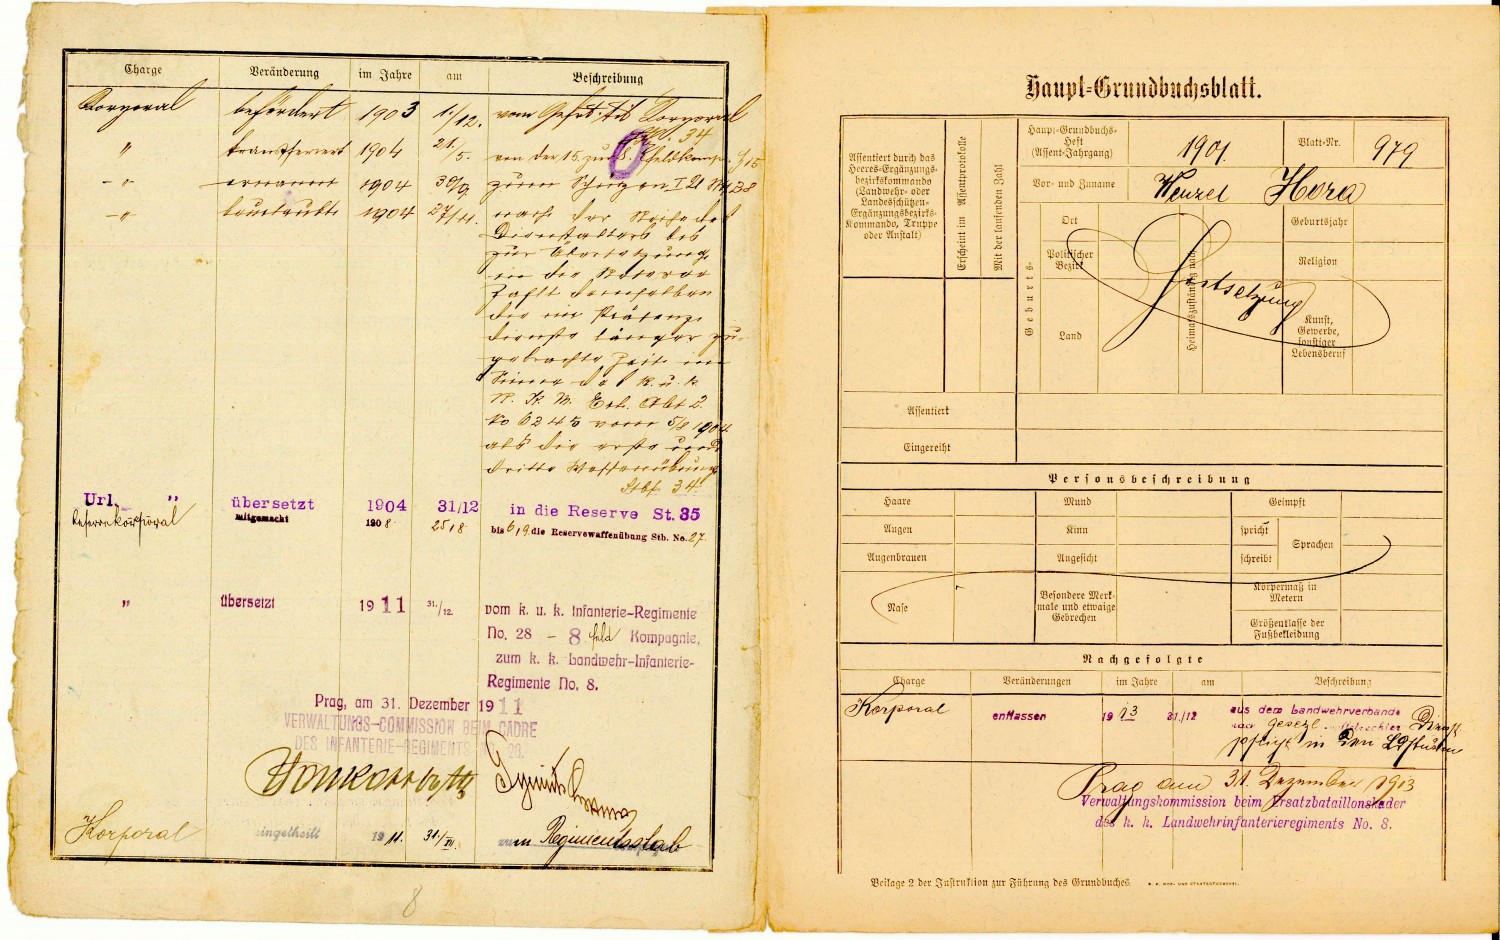 Charge Veränderung im Jahre am Beschreibung
Corporal befördert 1903 1./12. vom Gefrt. Corporal
34
" transferiert 1904 21./5. von der 15. zur 8. Feldkomp.
- " 1904 30/9 zum
- " beurlaubt 1904 27/11. nach der Reihe des
Dienstalters bis
zur Übersetzung
in die Reserve
zählt demselben
die im Präsenz-
dienste länger zu-
gebrachte Zeit im
Sinne des k. u. k.
R. K. M. Erl. Abt 2
No 6245 vom 5/8 1904
als die erste und
dritte Waffenübung
Stbf 34.
Url. " übersetzt 1904 31/12 in die Reserve St. 35
Reservekorporal mitgemacht 1908. 25/8 bis 6/9. die Reservewaffenübung Stb. No. 27.
" übersetzt 1911 31./12. vom k. u. k. Infanterie-Regimente
No. 28 - 8 feld Kompagnie,
zum k. k. Landwehr-Infanterie-
Regimente No. 8.
Prag, am 31. Dezember 1911
VERWALTUNGS-COMMISSION BEIM CADRE
DES INFANTERIE-REGIMENTS No. 28.
Korporal eingeteilt 1911. 31./XII. zum Regimentsstab
8
Haupt-Grundbuchsblatt.
Assentiert durch das
Heeres-Ergänzungs-
bezirkskommando
(Landwehr- oder
Landesschützen-
Ergänzungsbezirks-
Kommando, Truppe
oder Anstalt)
Erscheint im Assentprotokolle
Mit der laufenden Zahl
Haupt-Grundbuchs-
Heft
(Assent-Jahrgang)
1901.
Blatt-Nr. 979
Vor- und Zuname Wenzel Hora
Geburts-
Ort
Politischer
Bezirk
Land
Heimatszuständig nach
Geburtsjahr
Religion
Kunst,
Gewerbe,
sonstiger
Lebensberuf
Fortsetzung
Assentiert
Eingereiht
Personsbeschreibung
Haare Mund Geimpft
Augen Kinn spricht
Sprachen
Augenbrauen Angesicht schreibt
Nase
Besondere Merk-
male und etwaige
Gebrechen
Körpermaß in
Metern
Größenklasse der
Fußbekleidung
Nachgefolgte
Charge Veränderungen im Jahre am Beschreibung
Korporal entlassen 1913 31./12 aus dem Landwehrverbande
nach gesetzl. vollstreckter Dienst
pflicht in den Ldsturm
Prag am 31. Dezember 1913
Verwaltungskommission beim Ersatzbataillonskader
des k. k. Landwehrinfanterieregiments No. 8.
Beilage 2 der Instruktion zur Führung des Grundbuches.
K. K. HOF- UND STAATSDRUCKEREI.